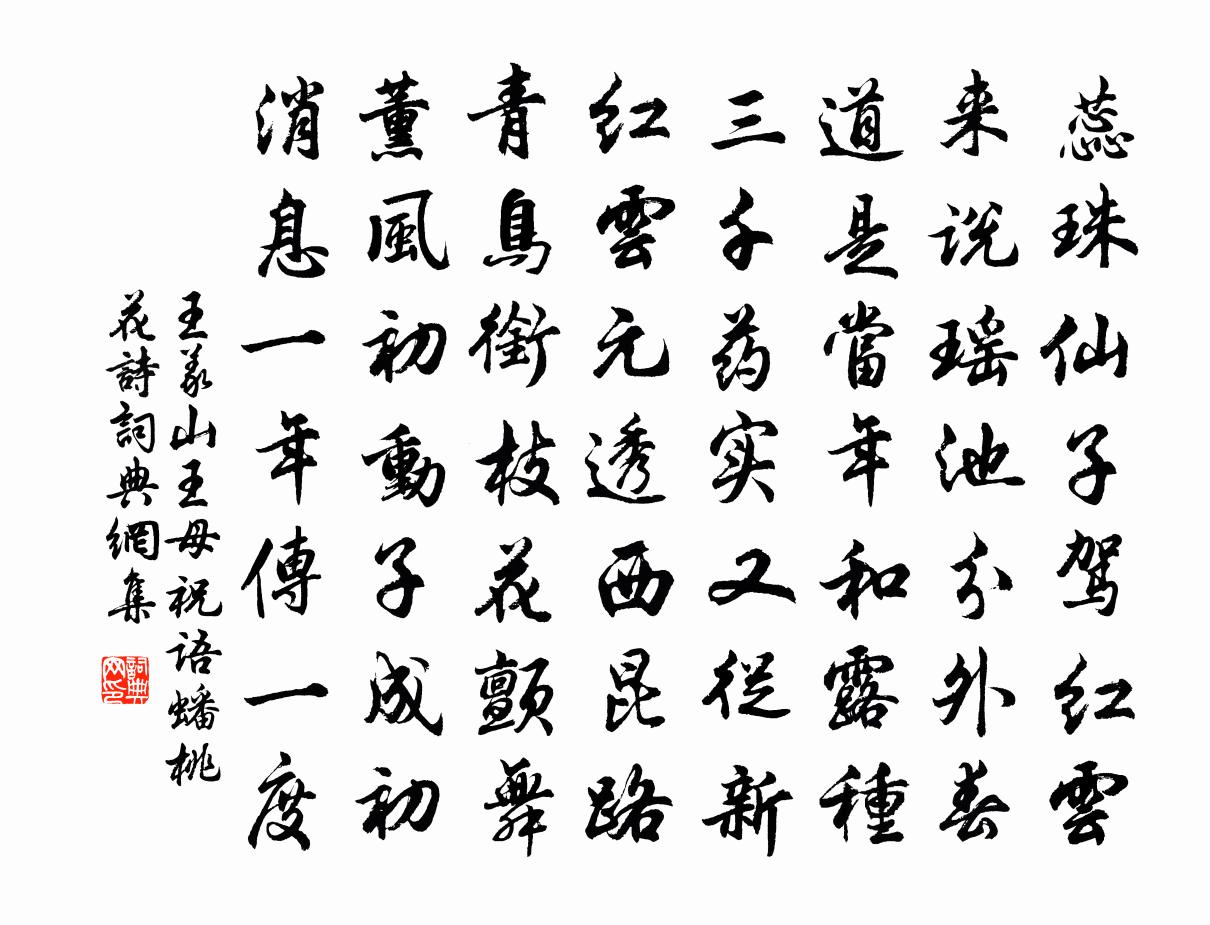 蕊珠仙子驾红雲
来说瑶池分外春
道是當年和露種
三千药实又從新
红雲元透西昆路
青鳥銜枝花顫舞
薰風初動子成初
消息一年傳一度
王義山王母祝语蟠桃
花詩詞典網集
詞典网印